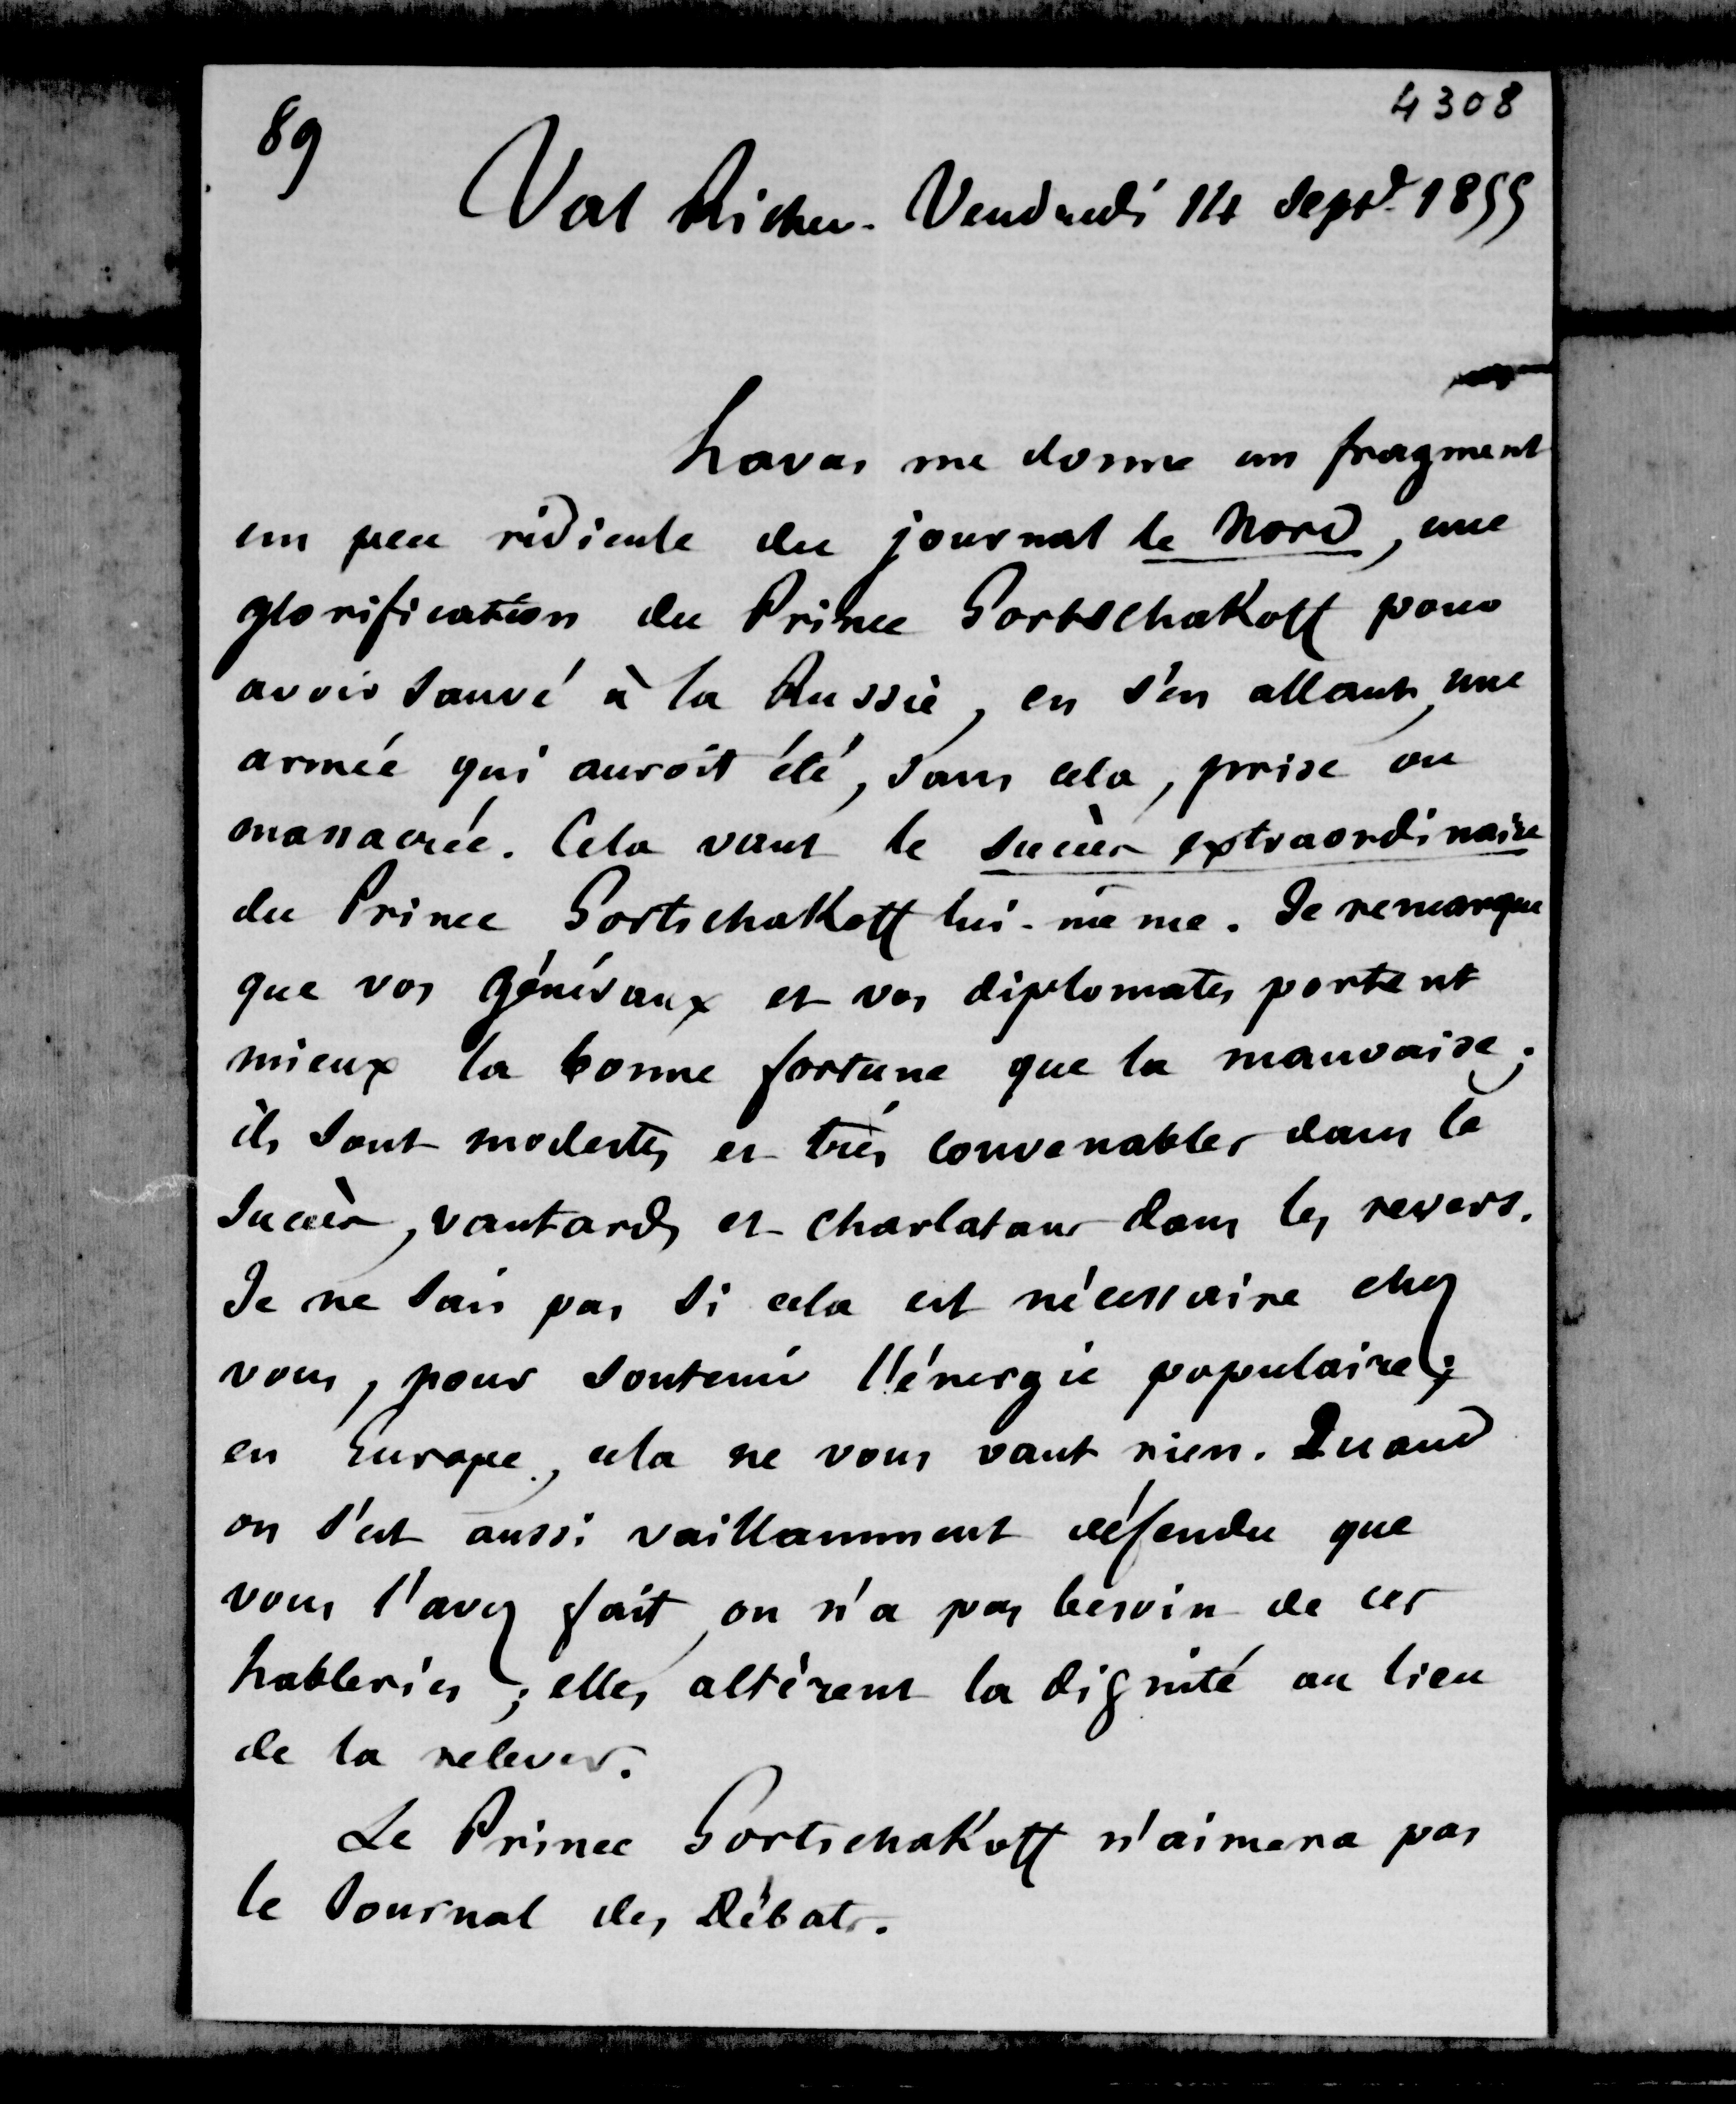 4308
89
Val Richer. Vendredi 14 Sept. 1855
havas me donne un fragment
un peu ridicule du journal le Nord, une
glorification du Prince Gortschakoff pour
avoir sauvé à la Russie, en s'en allant, une
armée qui auroit été, sans cela, prise ou
massacrée. Cela vaut le succès extraordinaire
du Prince Gortschakoff lui-même. Je remarque
que vos généraux et vos diplomates portent
mieux la bonne fortune que la mauvaise;
ils sont modestes et très convenables dans le
succès, vantards et charlatans dans les revers.
Je ne sais pas si cela est nécessaire chez
vous, pour soutenir l'énergie populaire;
en Europe, cela ne vous vaut rien. Quand
on s'est aussi vaillamment défendu que
vous l'avez fait, on n'a pas besoin de ces
hableries; elles altèrent la dignité au lieu
de la relever.
Le Prince Gortschakoff n'aimera pas
le Journal des Débats.